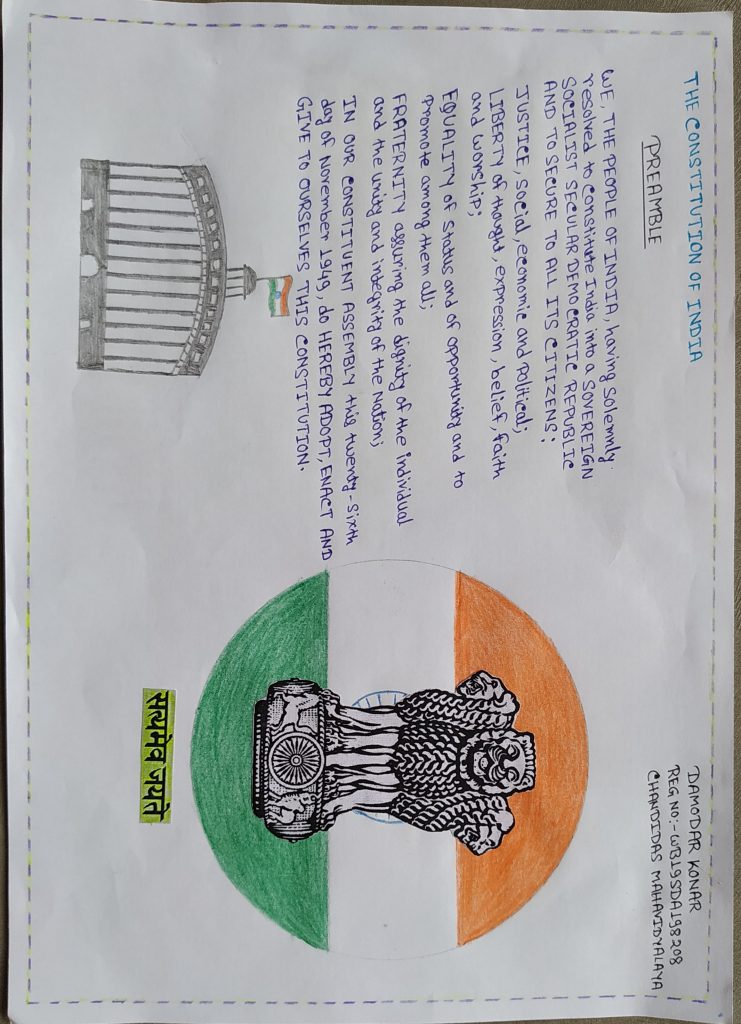 THE CONSTITUTION OF INDIA
PREAMBLE
WE, THE PEOPLE OF INDIA, having Solemnly
resolved to constitute India into a SOVEREIGN
SOCIALIST SECULAR DEMOCRATIC REPUBLIC
AND TO SECURE TO ALL ITS CITIZENS:
JUSTICE, Social, economic and Political;
LIBERTY of thought, expression, belief, faith
and worship;
EQUALITY of Status and of opportunity and to
Promote among them all;
FRATERNITY assuring the dignity of the individual
and the unity and integrity of the Nation;
IN OUR CONSTITUENT ASSEMBLY this twenty-sixth
day of November 1949, do HEREBY ADOPT, ENACT AND
GIVE TO OURSELVES THIS CONSTITUTION.
DAMODAR KONAR
REG NO:- WB19SDA198208
CHANDIDAS MAHAVIDYALAYA
सत्यमेव जयते